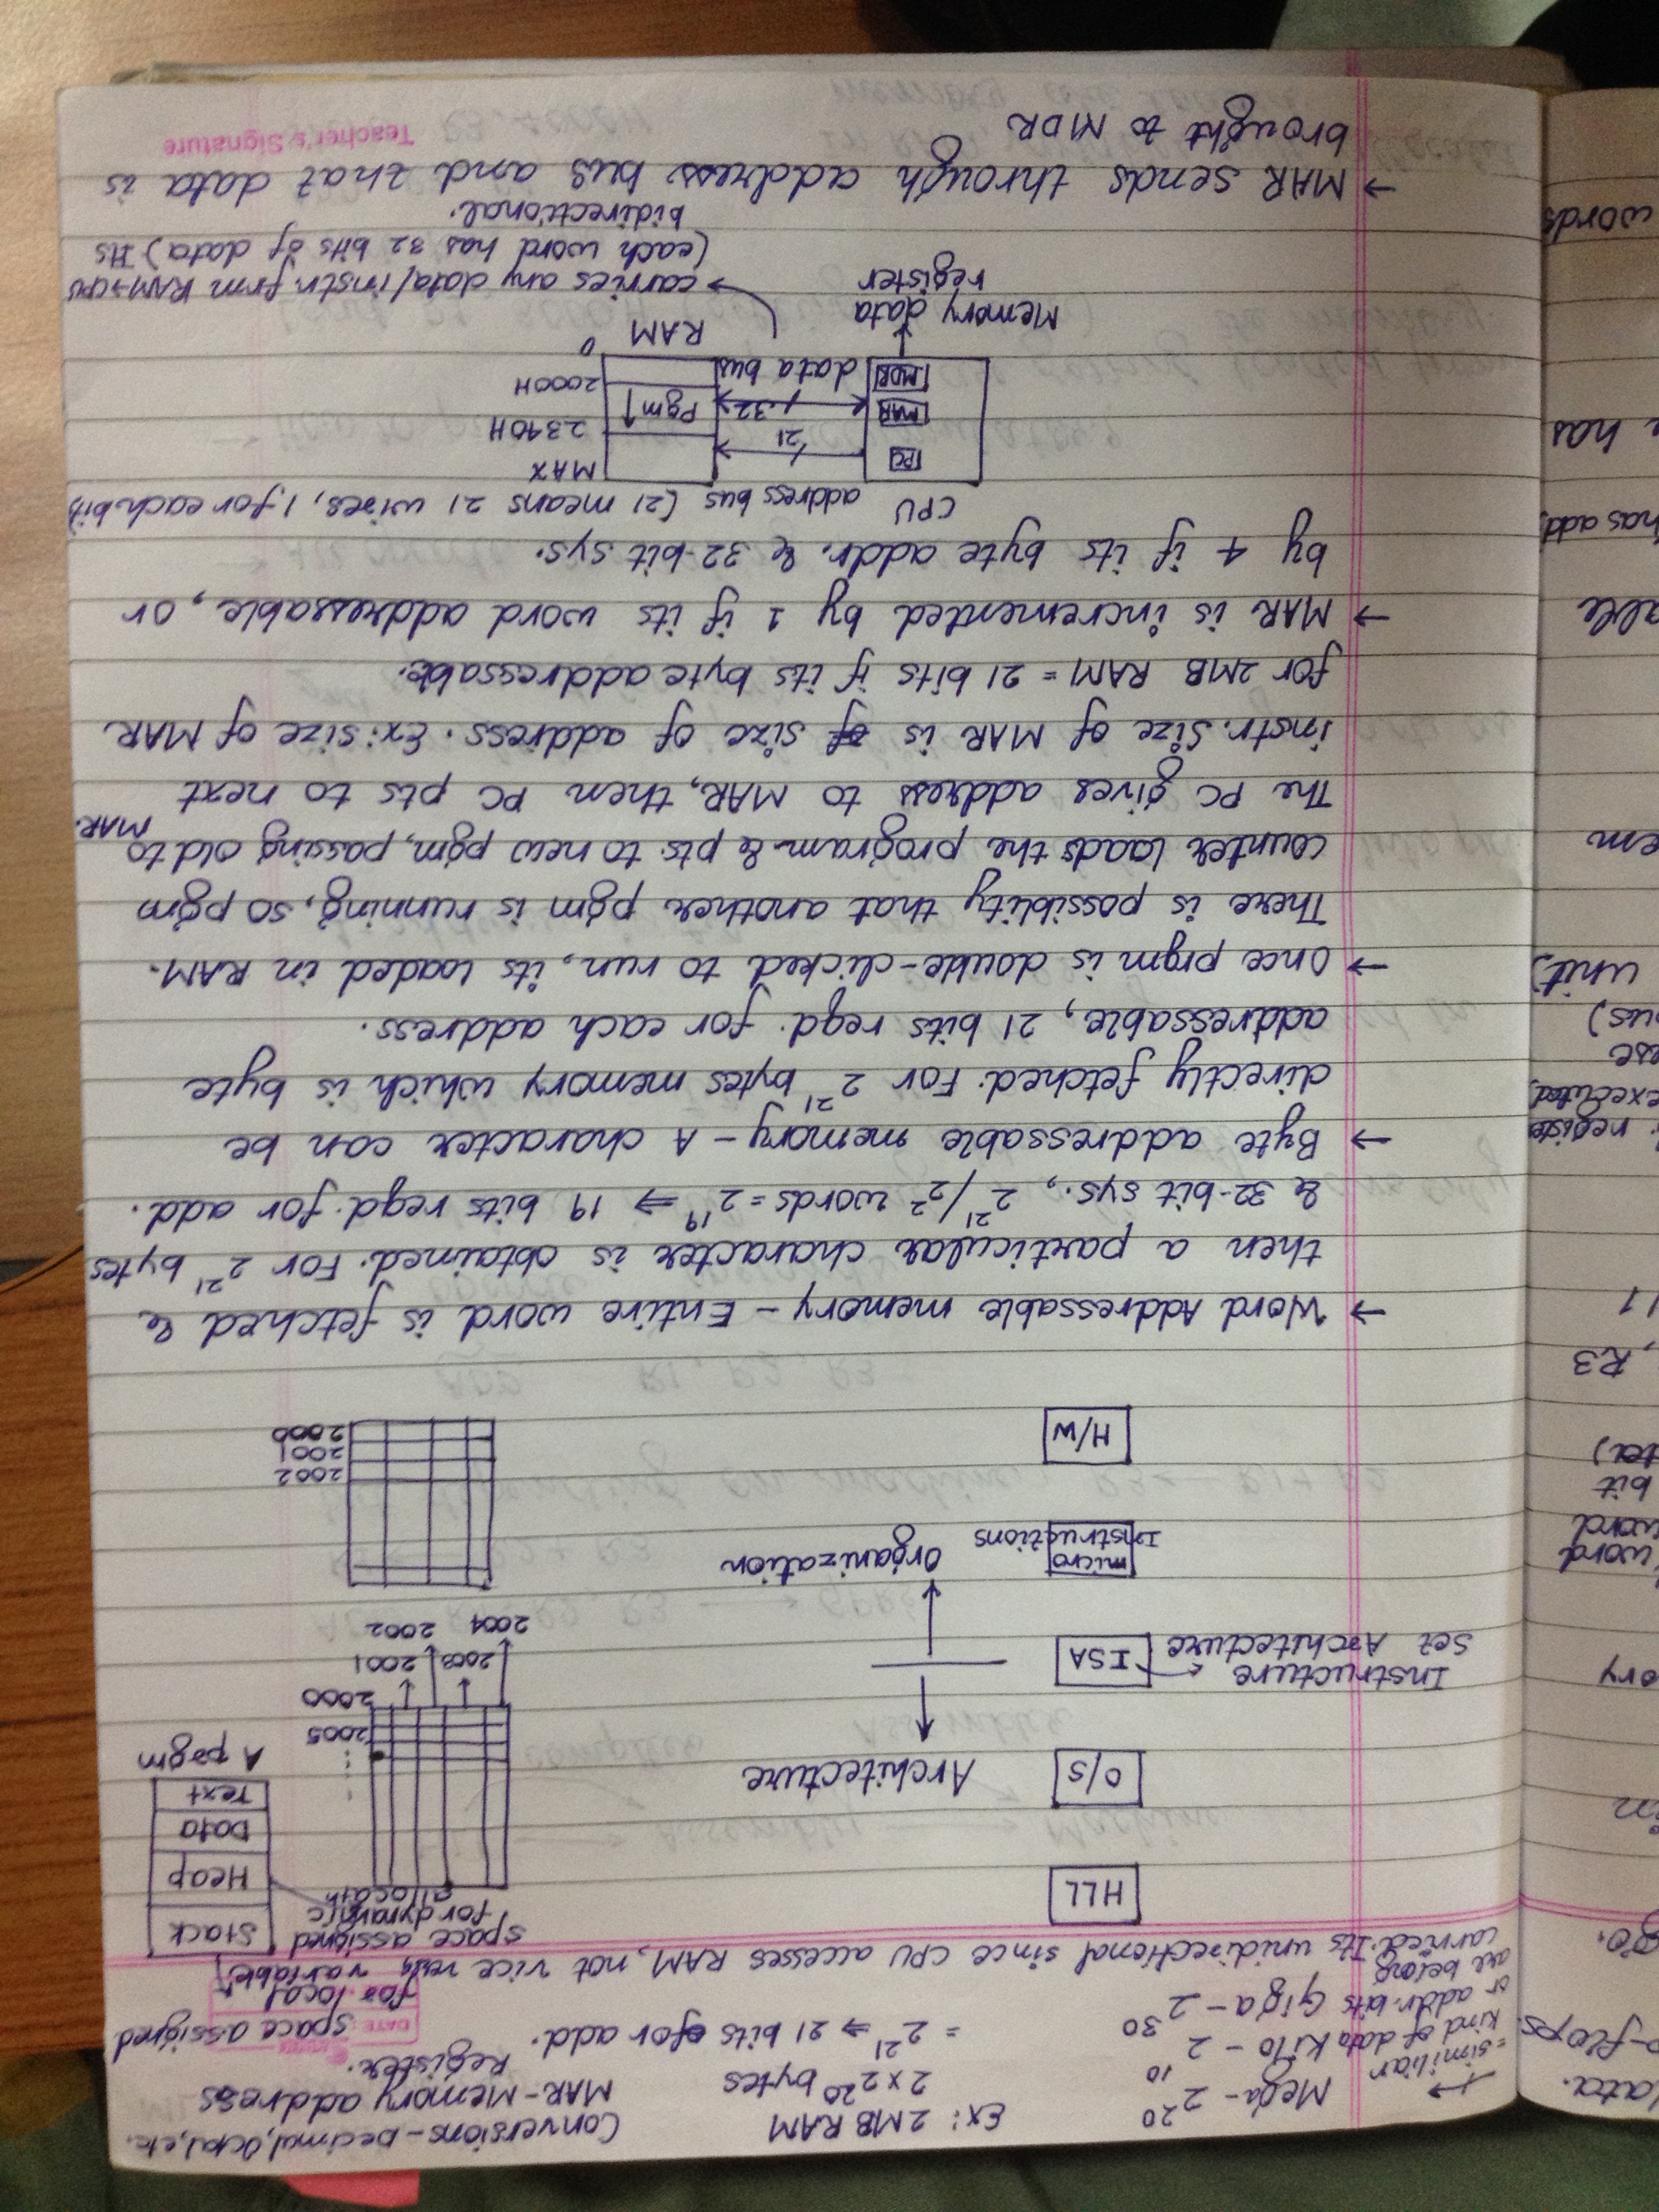 lata.
o-flops.
go.
in
ory
word
word
bit
, R3
/ 1
register
executed,
ese
ous)
unit)
em
able
has add.
has
words
= similiar
kind of data
or addr. bits
are being
carried.
Mega - 2^20
Kilo - 2^10
Giga - 2^30
Ex: 2MB RAM
2 x 2^20 bytes
= 2^21 ⇒ 21 bits for add.
Conversions - Decimal, Octal, etc.
MAR - Memory address
Register.
DATE
Its unidirectional since CPU accesses RAM, not vice versa
space assigned
for local
variable
space assigned
for dynamic
allocatn
Stack
Heap
Data
Text
A prgm
HLL
O/S
Architecture
2005
2000
2003 2001
2004 2002
Instructure
Set Architecture
ISA
micro
Instructions
Organization
2002
2001
2000
H/W
→ Word Addressable memory - Entire word is fetched &
then a particular character is obtained. For 2^21 bytes
& 32-bit sys., 2^21/2^2 words = 2^19 ⇒ 19 bits reqd. for add.
→ Byte addressable memory - A character can be
directly fetched. For 2^21 bytes memory which is byte
addressable, 21 bits reqd. for each address.
→ Once prgm is double-clicked to run, its loaded in RAM.
There is possiblity that another pgm is running, so pgm
counter loads the program & pts. to new pgm, passing old to
MAR.
The PC gives address to MAR, then PC pts to next
instr. Size of MAR is of size of address. Ex: size of MAR
for 2MB RAM = 21 bits if its byte addressable.
→ MAR is incremented by 1 if its word addressable, or
by 4 if its byte addr. & 32-bit sys.
CPU address bus (21 means 21 wires, 1 for each bit)
PC
21
MAX
2340H
MAR
32
Pgm ↑
MDR
data bus
2000H
0
RAM
Memory data
register
carries any data/instr. frm RAM→CPU
(each word has 32 bits of data) Its
bidirectional.
→ MAR sends through address bus and that data is
brought to MDR
Teacher's Signature